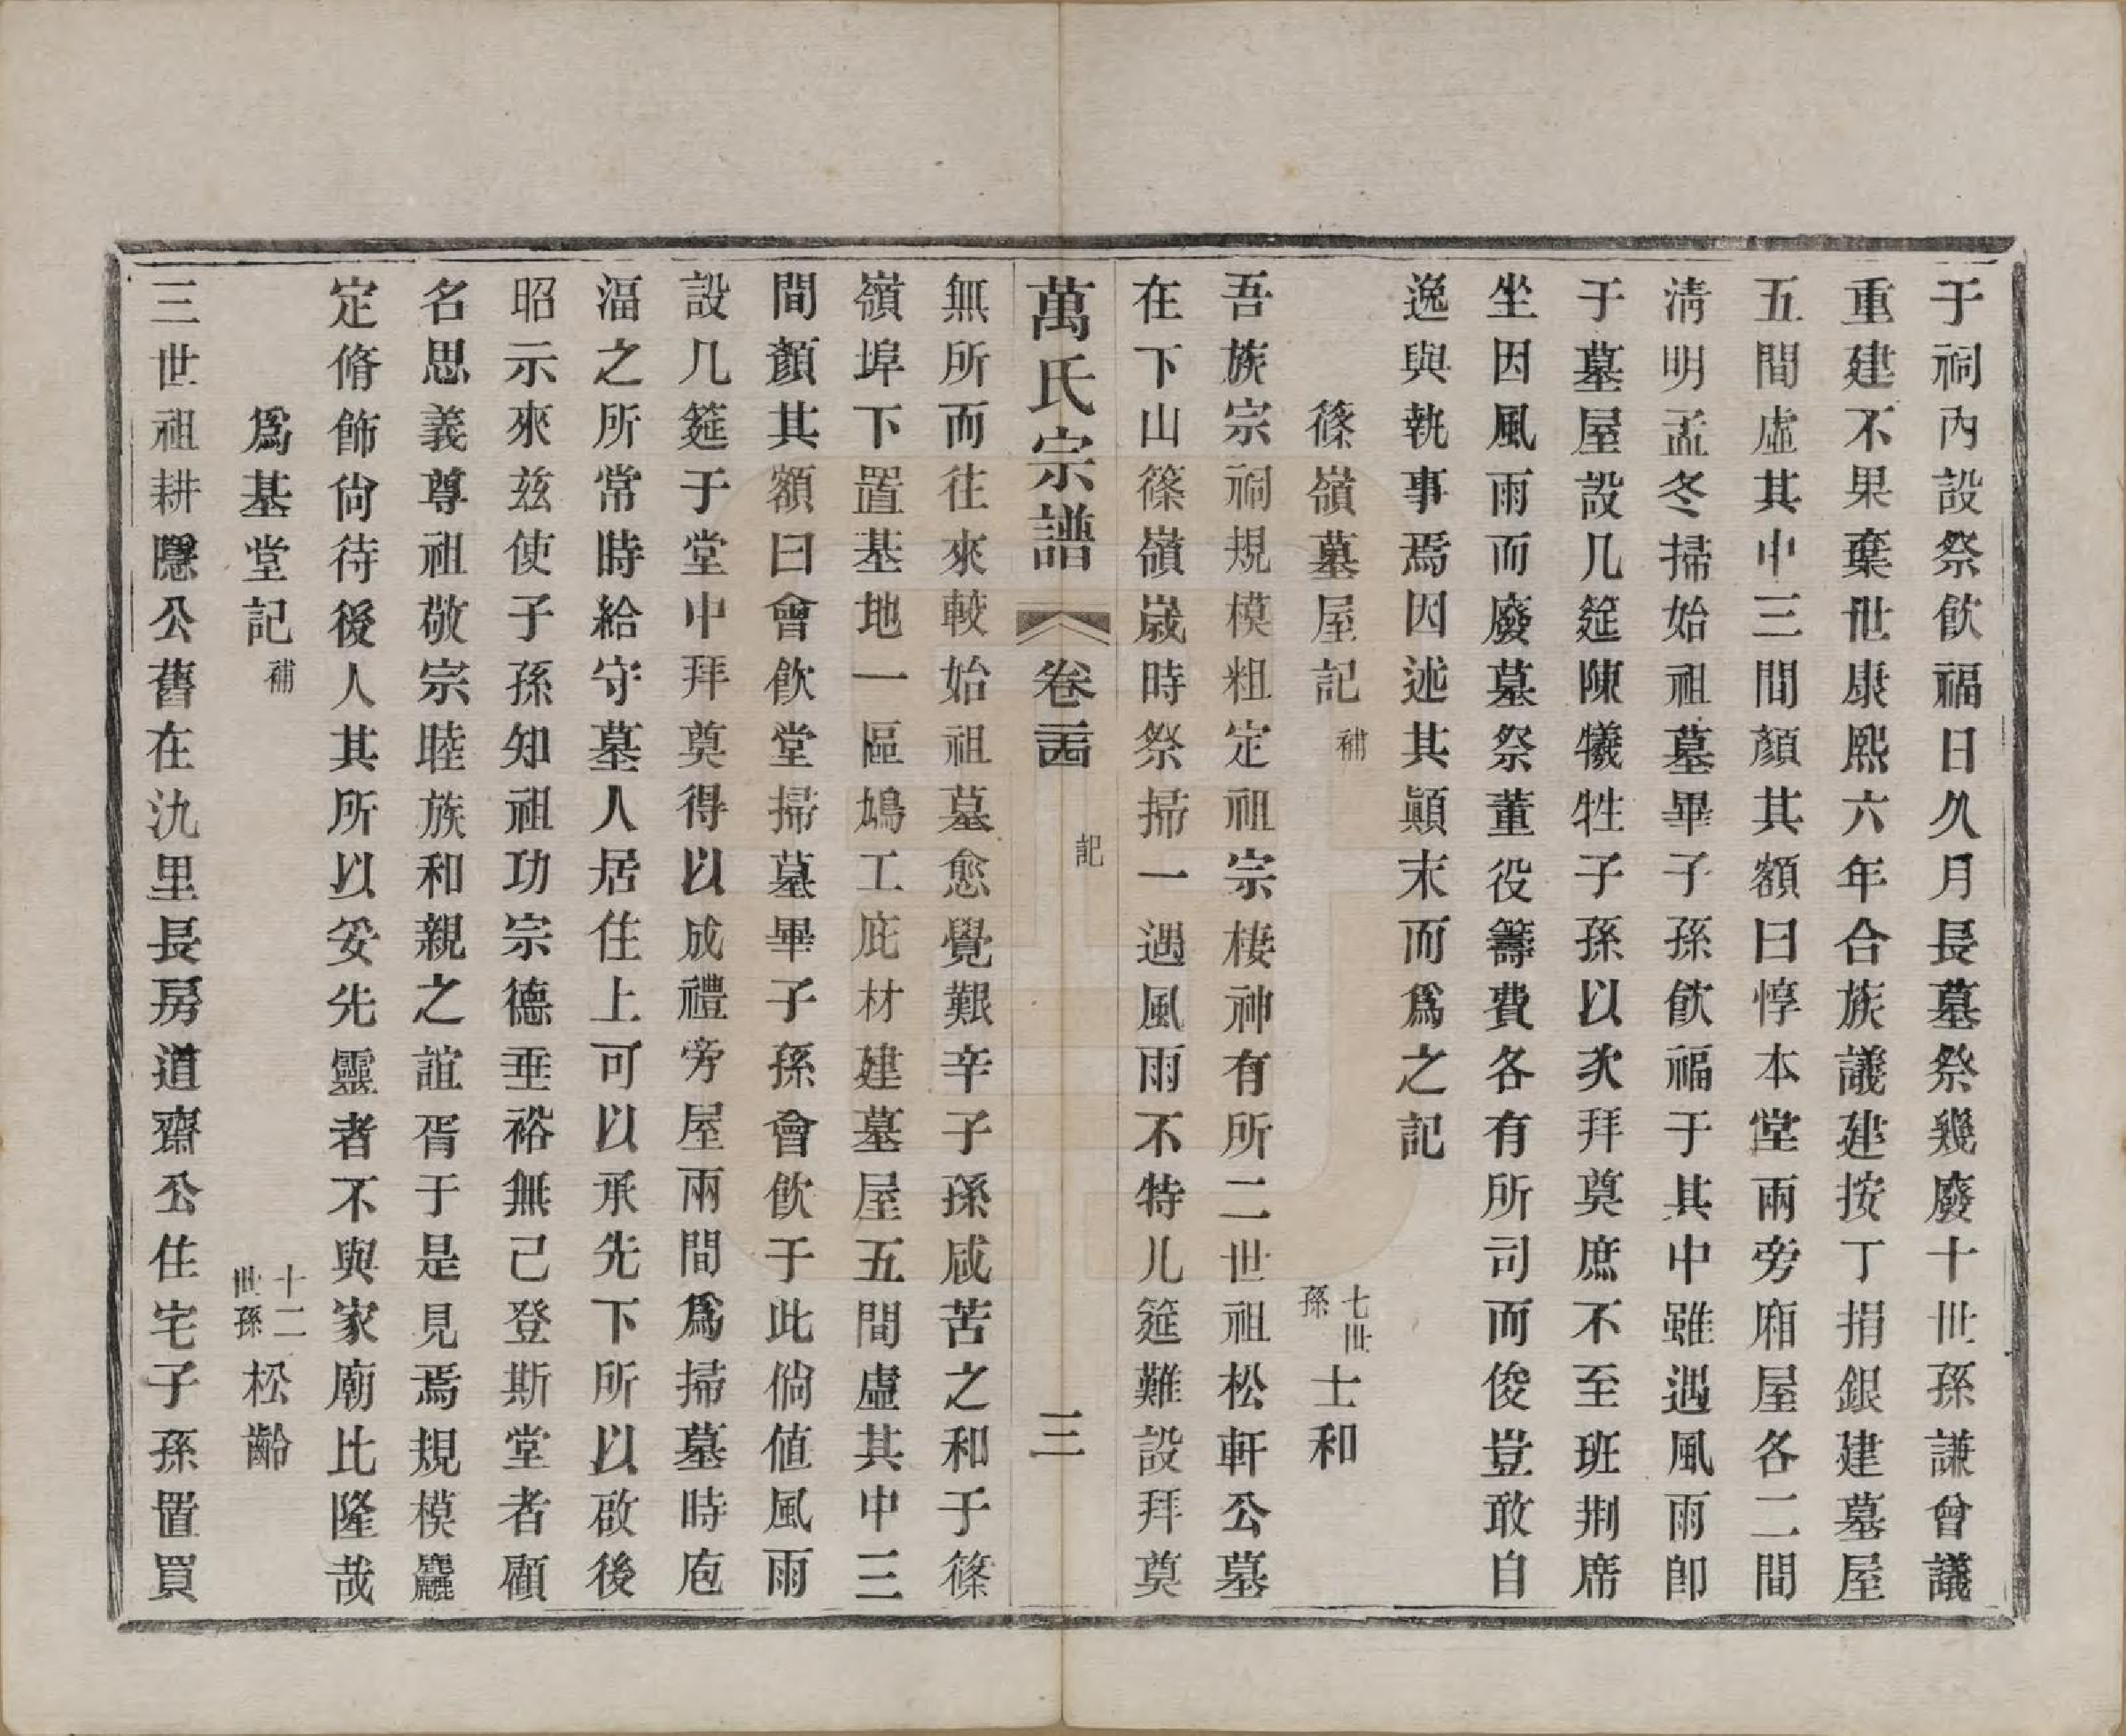 于祠內設祭飮福日久月長墓祭幾廢十世孫謙曾議
重建不果棄世康熙六年合族議建按丁捐銀建墓屋
五間虛其中三間顏其額曰惇本堂兩旁廂屋各二間
淸明孟冬掃始祖墓畢子孫飮福于其中雖遇風雨卽
于墓屋設几筵陳犧牲子孫以次拜奠庶不至班荆席
坐因風雨而廢墓祭董役籌費各有所司而俊豈敢自
逸與執事焉因述其顚末而爲之記
篠嶺墓屋記 補 七世孫 士和
吾族宗祠規模粗定祖宗棲神有所二世祖松軒公墓
在下山篠嶺歲時祭掃一遇風雨不特几筵難設拜奠
萬氏宗譜 卷二十四 記 三
無所而往來較始祖墓愈覺艱辛子孫咸苦之和于篠
嶺埠下置基地一區鳩工庀材建墓屋五間虛其中三
間顏其額曰會飮堂掃墓畢子孫會飮于此倘値風雨
設几筵于堂中拜奠得以成禮旁屋兩間爲掃墓時庖
湢之所常時給守墓人居住上可以承先下所以啟後
昭示來兹使子孫知祖功宗德垂裕無已登斯堂者顧
名思義尊祖敬宗睦族和親之誼胥于是見焉規模麤
定脩飾尙待後人其所以妥先靈者不與家廟比隆哉
爲基堂記 補 十二世孫 松齡
三世祖耕隱公舊在氿里長房道齋公住宅子孫置買